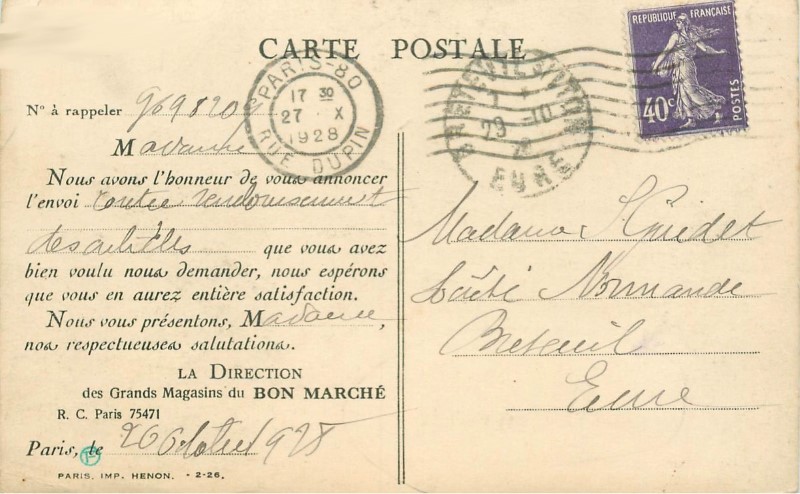 CARTE POSTALE
N° à rappeler 969820
Madame
Nous avons l'honneur de vous annoncer
l'envoi contre remboursement
des articles que vous avez
bien voulu nous demander, nous espérons
que vous en aurez entière satisfaction.
Nous vous présentons, Madame,
nos respectueuses salutations.
LA DIRECTION
des Grands Magasins du BON MARCHÉ
R. C. Paris 75471
Paris, le 26 Octobre 1928
PARIS, IMP. HENON. - 2-26.
PARIS-80
17 30
27 X
1928
RUE DUPIN
29 -10
EURE
REPUBLIQUE FRANÇAISE
40c
POSTES
Madame Guidet
Normande
Breteuil
Eure